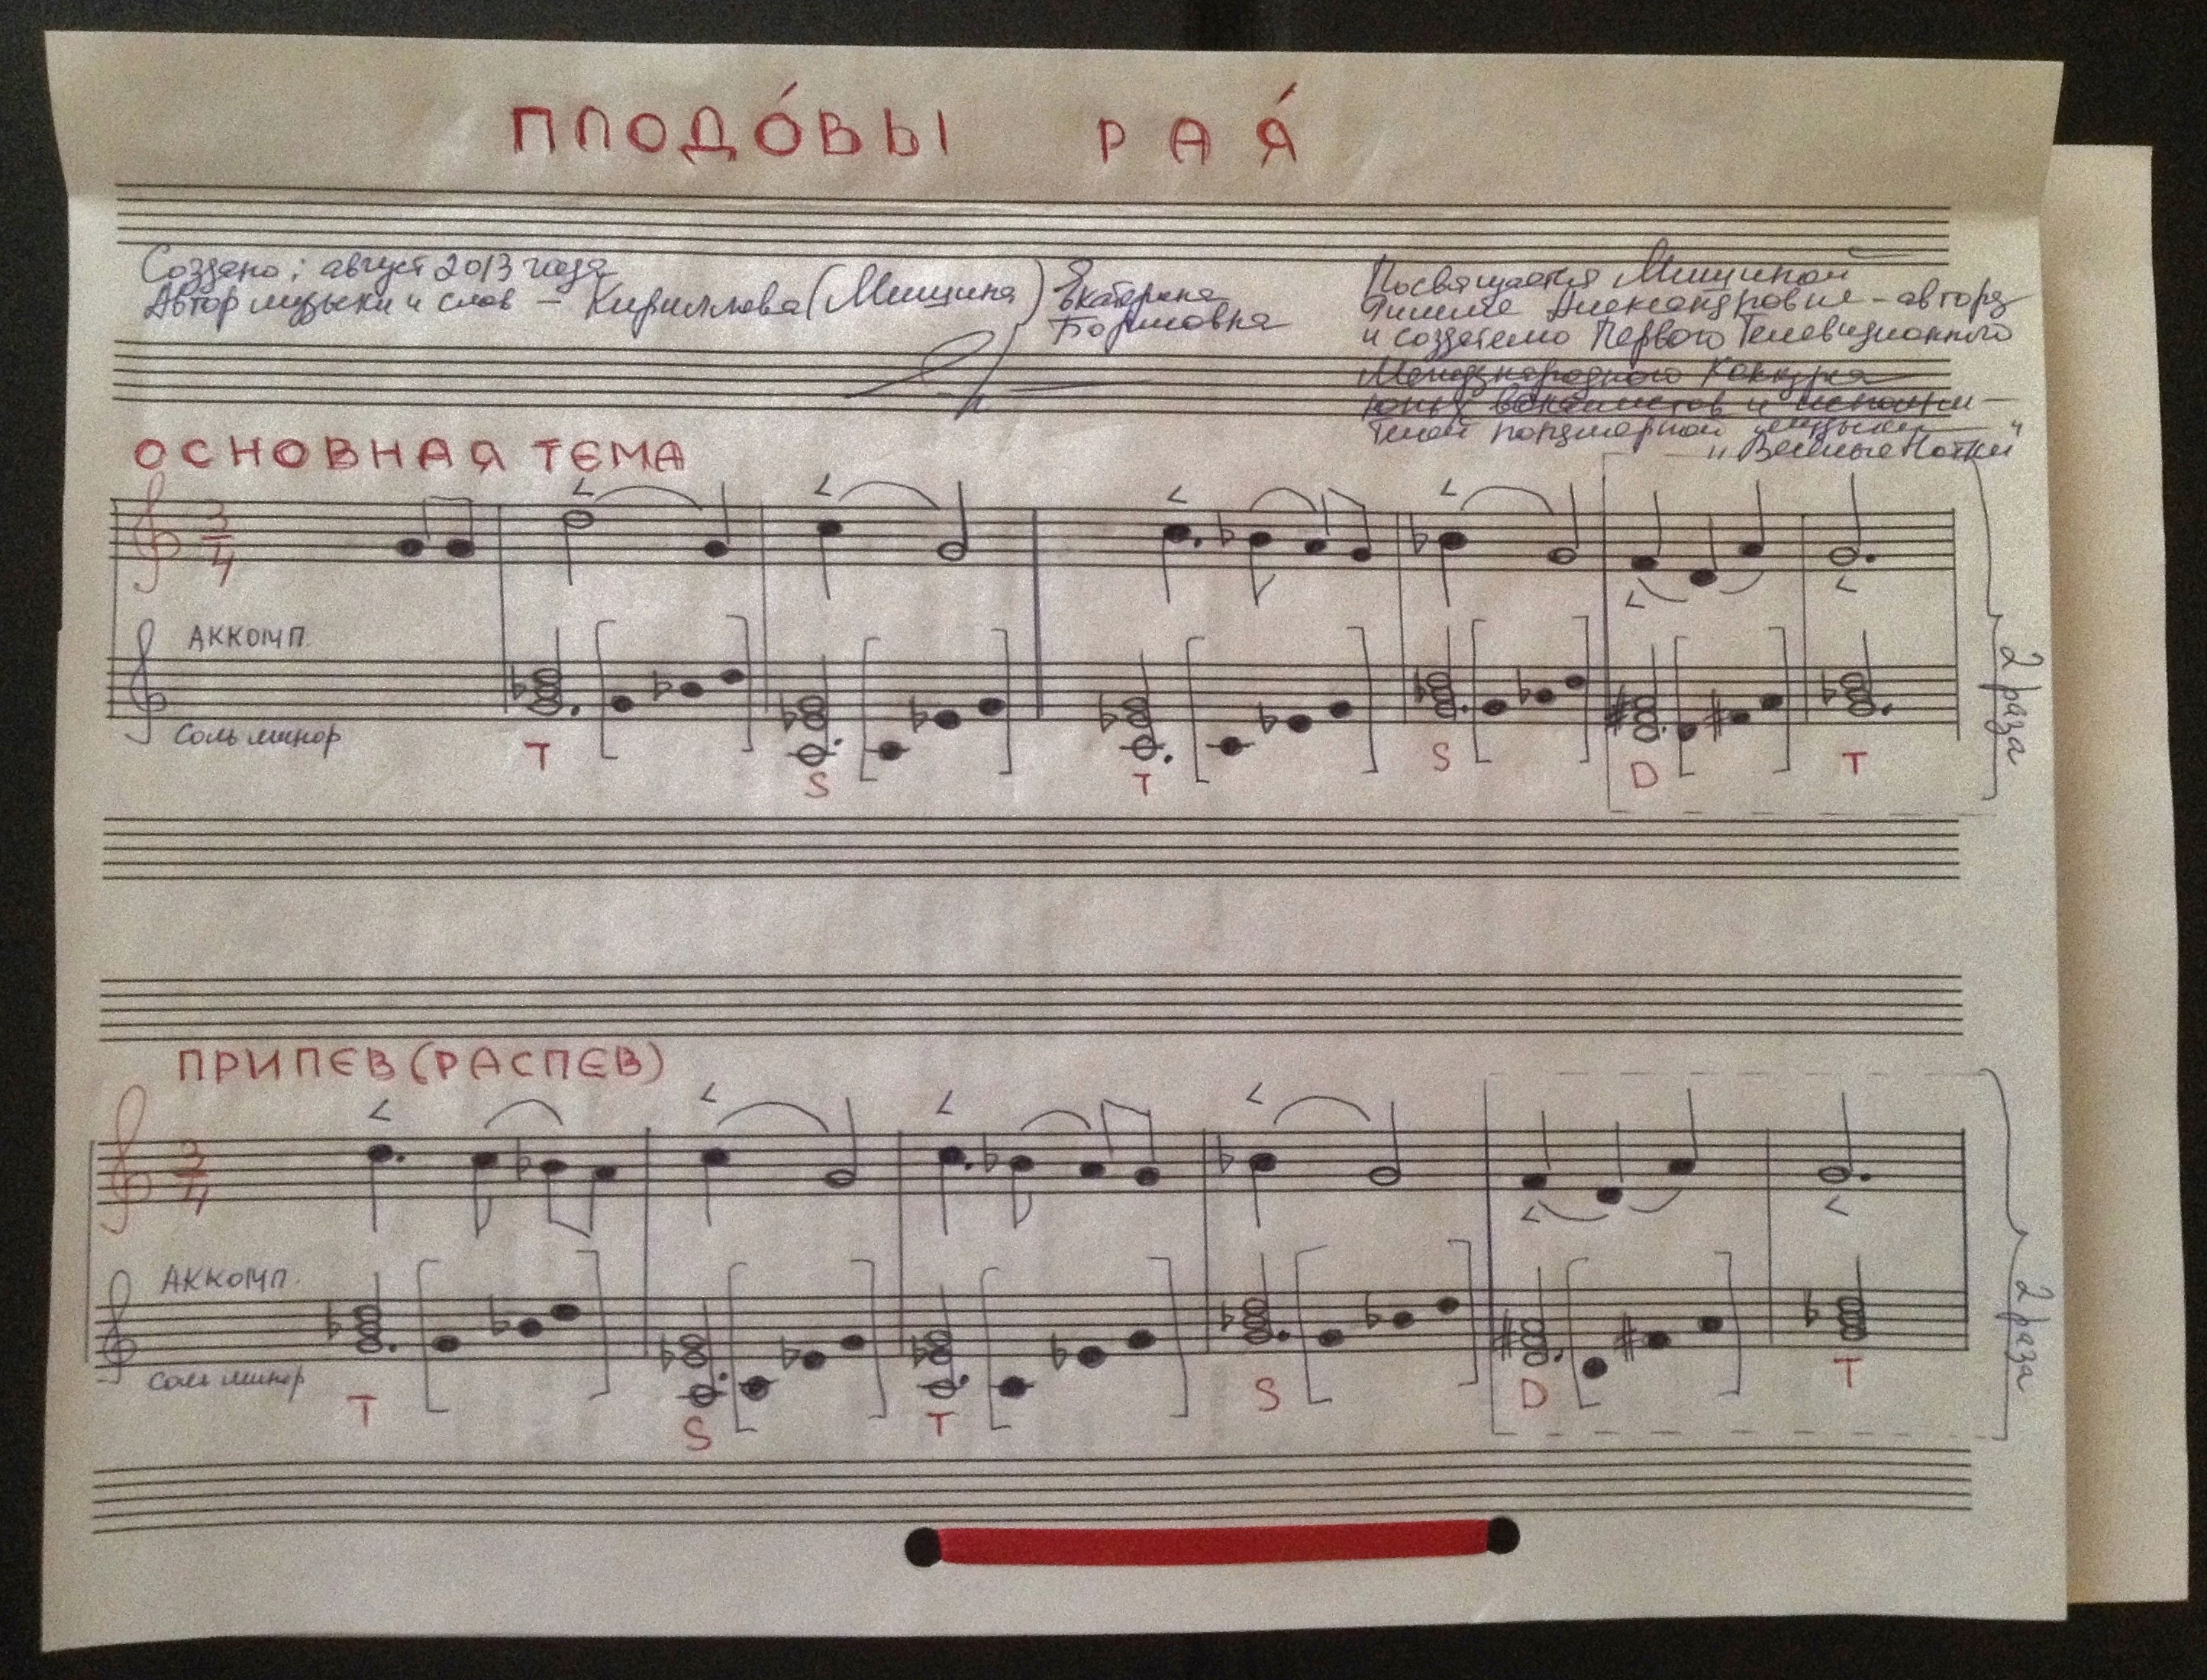 ПЛОДО́ВЫ РАЯ́
Создано: август 2013 года
Автор музыки и слов — Кириллова (Мищина) Екатерина
Борисовна
Посвящается Мищиной
Римме Александровне - автору
и создателю Первого Телевизионного
Международного Конкурса
юных вокалистов и исполни-
телей популярной музыки
"Весёлые Нотки"
ОСНОВНАЯ ТЕМА
3/4
АККОМП.
Соль минор
T S T S D T
2 раза
ПРИПЕВ (РАСПЕВ)
3/4
АККОМП.
соль минор
T S T S D T
2 раза